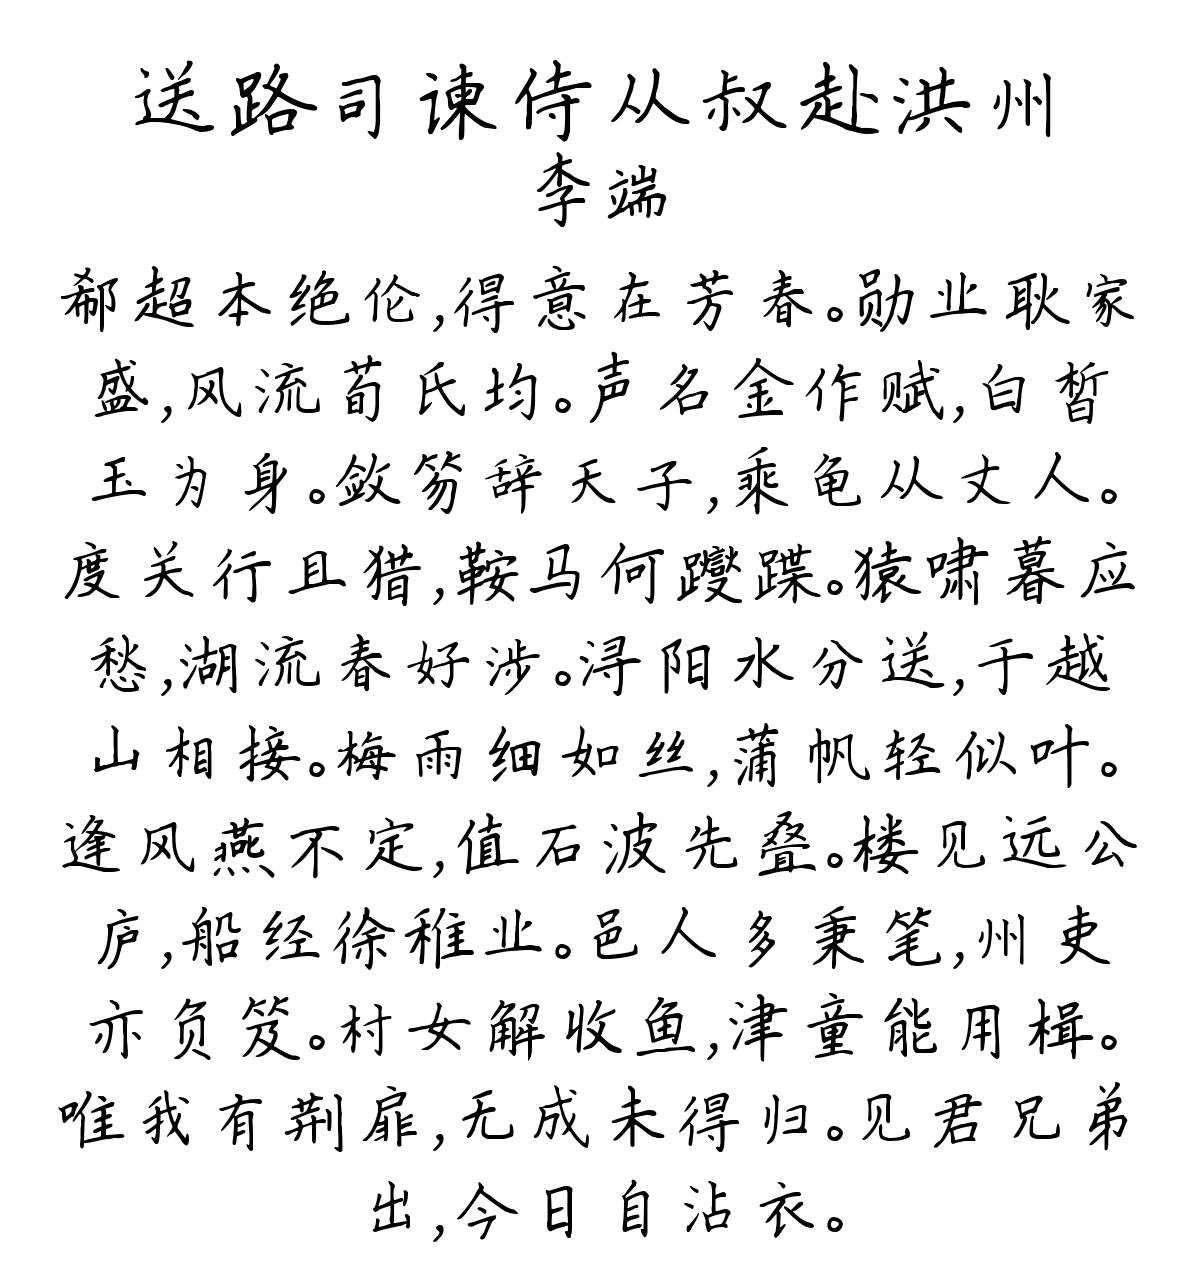 送路司谏侍从叔赴洪州
李端
郗超本绝伦,得意在芳春。勋业耿家
盛,风流荀氏均。声名金作赋,白皙
玉为身。敛笏辞天子,乘龟从丈人。
度关行且猎,鞍马何躞蹀。猿啸暮应
愁,湖流春好涉。浔阳水分送,于越
山相接。梅雨细如丝,蒲帆轻似叶。
逢风燕不定,值石波先叠。楼见远公
庐,船经徐稚业。邑人多秉笔,州吏
亦负笈。村女解收鱼,津童能用楫。
唯我有荆扉,无成未得归。见君兄弟
出,今日自沾衣。